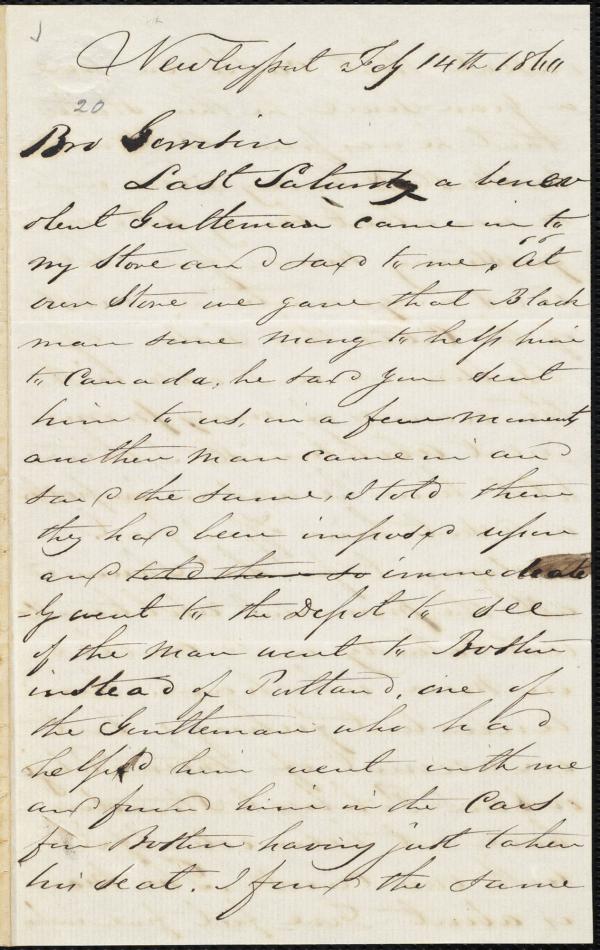 Newburyport Feby 14th 1860
20
Bro Garrison
Last Saturday a benev
olent Gentleman came in to
my Store and said to me, "At
our Store we gave that Black
man some money to help him
to Canada, he said you sent
him to us, in a few moments
another man came in and
said the same, I told them
they had been imposed upon
and told them so immediate
-ly went to the Depot to see
if the man went to Boston
instead of Portland, one of
the Gentleman who had
helped him went with me
and found him in the Cars
for Boston having just taken
his seat. I found the same